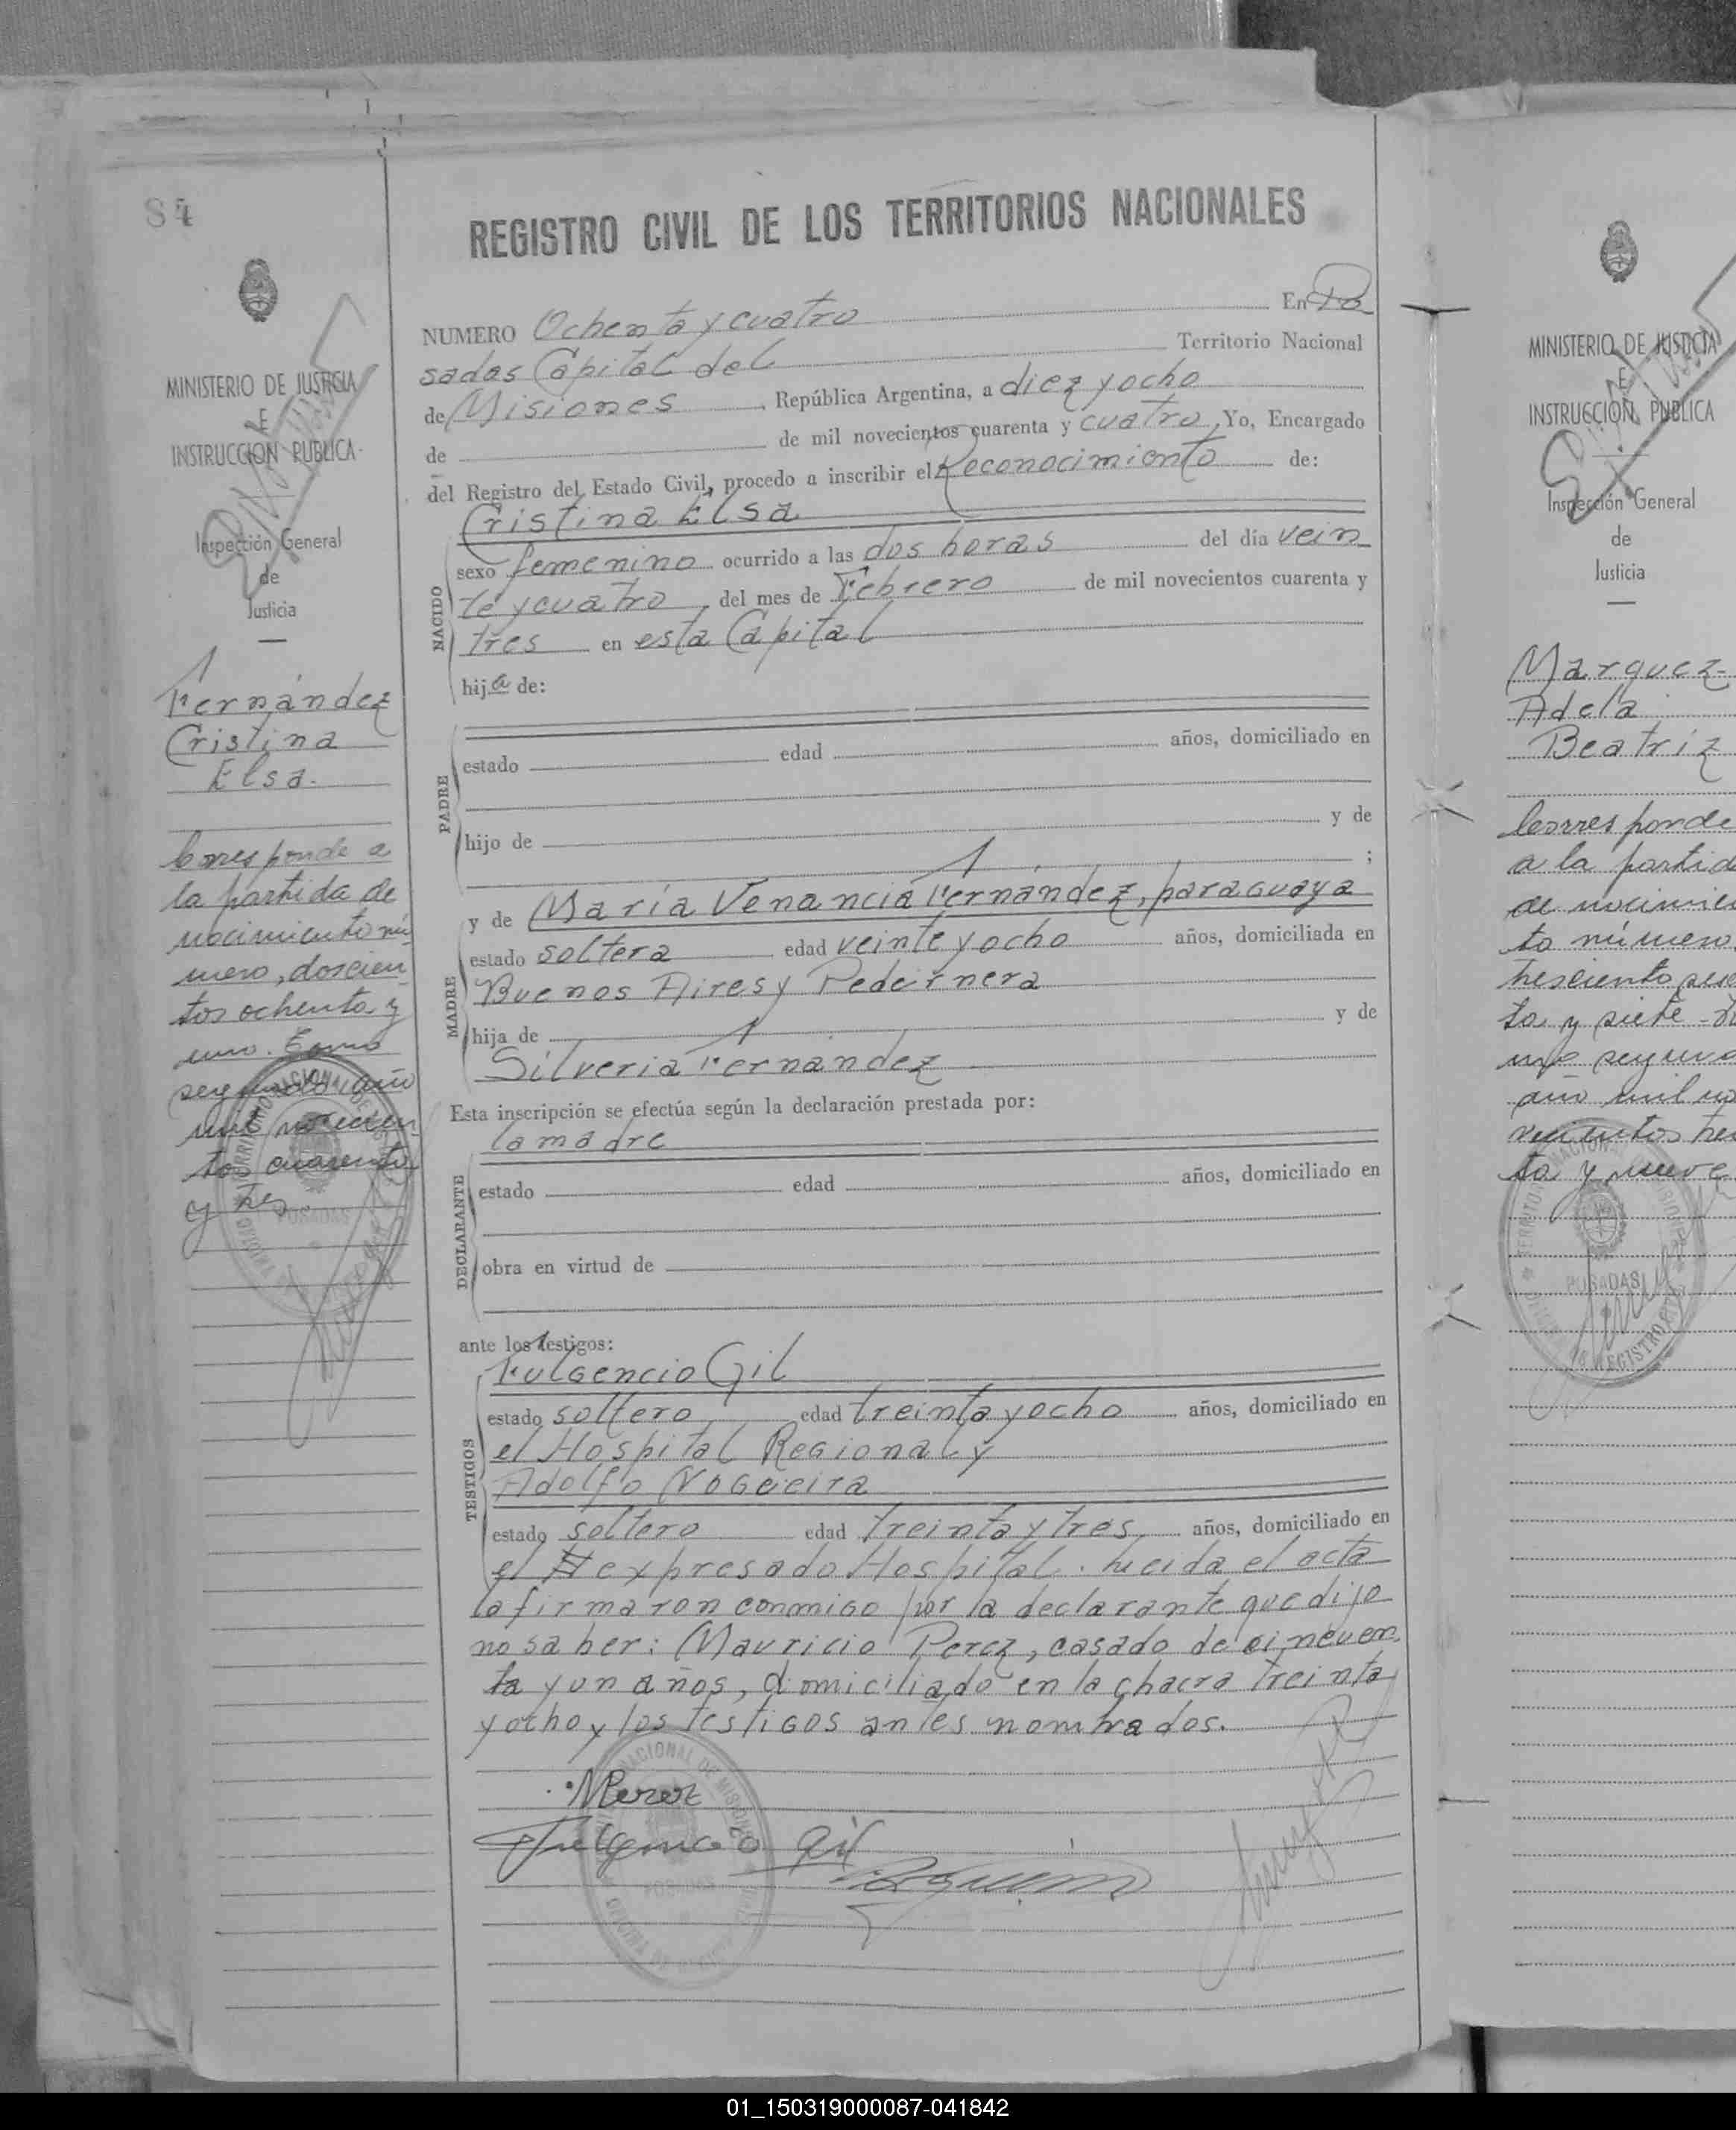 84
MINISTERIO DE JUSTICIA
E
INSTRUCCION PUBLICA
Inspección General
de
Justicia
Fernández
Cristina
Elsa.
Corresponde a
la partida de
nacimiento nú-
mero, doscien
tos ochenta y
uno. Tomo
segundo año
mil novecien
tos cuarenta
y tres
REGISTRO CIVIL DE LOS TERRITORIOS NACIONALES
NUMERO Ochenta y cuatro En Po
sadas Capital del Territorio Nacional
de Misiones, República Argentina, a diez y ocho
de de mil novecientos cuarenta y cuatro, Yo, Encargado
del Registro del Estado Civil, procedo a inscribir el Reconocimiento de:
NACIDO
Cristina Elsa
sexo femenino ocurrido a las dos horas del día vein
te y cuatro, del mes de Febrero de mil novecientos cuarenta y
tres en esta Capital
hija de:
PADRE
estado edad años, domiciliado en
hijo de y de
;
MADRE
y de María Venancia Fernández, paraguaya
estado soltera edad veinte y ocho años, domiciliada en
Buenos Aires y Pedernera
hija de y de
Silveria Fernandez
Esta inscripción se efectúa según la declaración prestada por:
DECLARANTE
la madre
estado edad años, domiciliado en
obra en virtud de
ante los testigos:
TESTIGOS
Fulgencio Gil
estado soltero edad treinta y ocho años, domiciliado en
el Hospital Regional y
Adolfo Nogueira
estado soltero edad treinta y tres años, domiciliado en
el expresado Hospital. Leida el acta
la firmaron conmigo por la declarante que dijo
no saber: Mauricio Perez, casado de cincuen
ta y un años, domiciliado en la chacra treinta
y ocho y los testigos antes nombrados.
MPerez
Fulgencio Gil
POSADAS
MINISTERIO DE JUSTICIA
E
INSTRUCCION PUBLICA
Inspección General
de
Justicia
Marquez-
Adela
Beatriz
Corresponde
a la partid
de nacimien
to número,
ta y siete
año mil no
ta y nueve
POSADAS
01_150319000087-041842